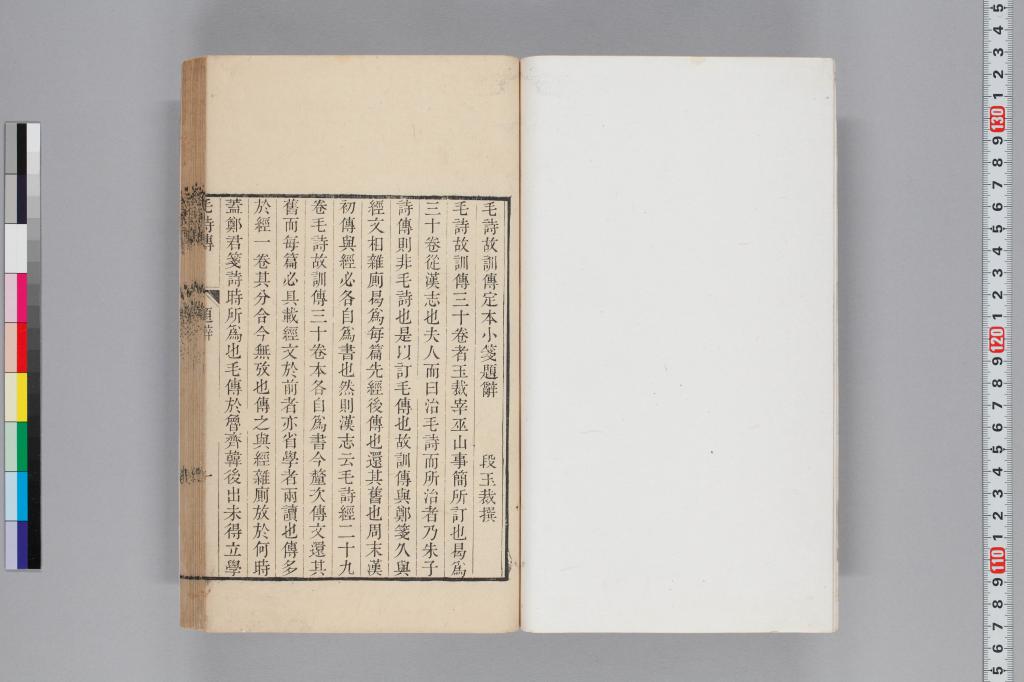 毛詩故訓傳定本小箋題辭　段玉裁撰
毛詩故訓傳三十卷者玉裁宰巫山事簡所訂也曷爲
三十卷從漢志也夫人而曰治毛詩而所治者乃朱子
詩傳則非毛詩也是以訂毛傳也故訓傳與鄭箋久與
經文相雜廁曷爲每篇先經後傳也還其舊也周末漢
初傳與經必各自爲書也然則漢志云毛詩經二十九
卷毛詩故訓傳三十卷本各自爲書今釐次傳文還其
舊而每篇必具載經文於前者亦省學者兩讀也傳多
於經一卷其分合今無攷也傳之與經雜廁放於何時
蓋鄭君箋詩時所爲也毛傳於魯齊韓後出未得立學
毛詩傳　題辭　一
5 4 3 2 1 130 9 8 7 6 5 4 3 2 1 120 9 8 7 6 5 4 3 2 1 110 9 8 7 6 5